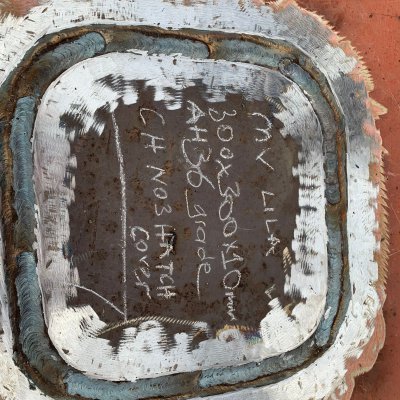 MV LILA
300x300x10mm
AH36 grade
CH NO3 HATH
COVER